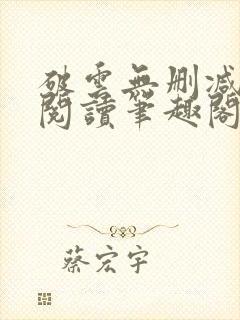 破雲無刪減
閱讀筆趣閣
蔡宏宇